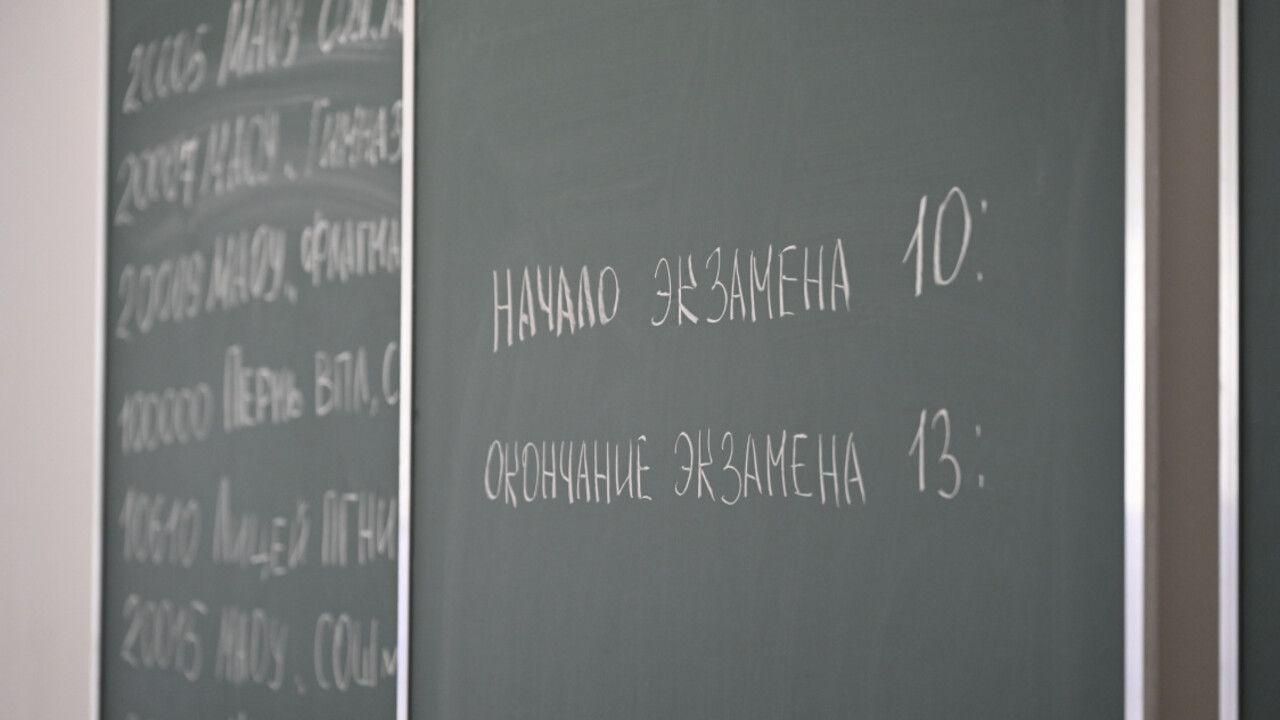 МАОУ
МАОУ, Гимназ
МАОУ, Флагма
100000 Пермь ВПЛ, С
10610 Лицей ПГНИ
20015 МАОУ, СОШ
НАЧАЛО ЭКЗАМЕНА 10:
ОКОНЧАНИЕ ЭКЗАМЕНА 13: